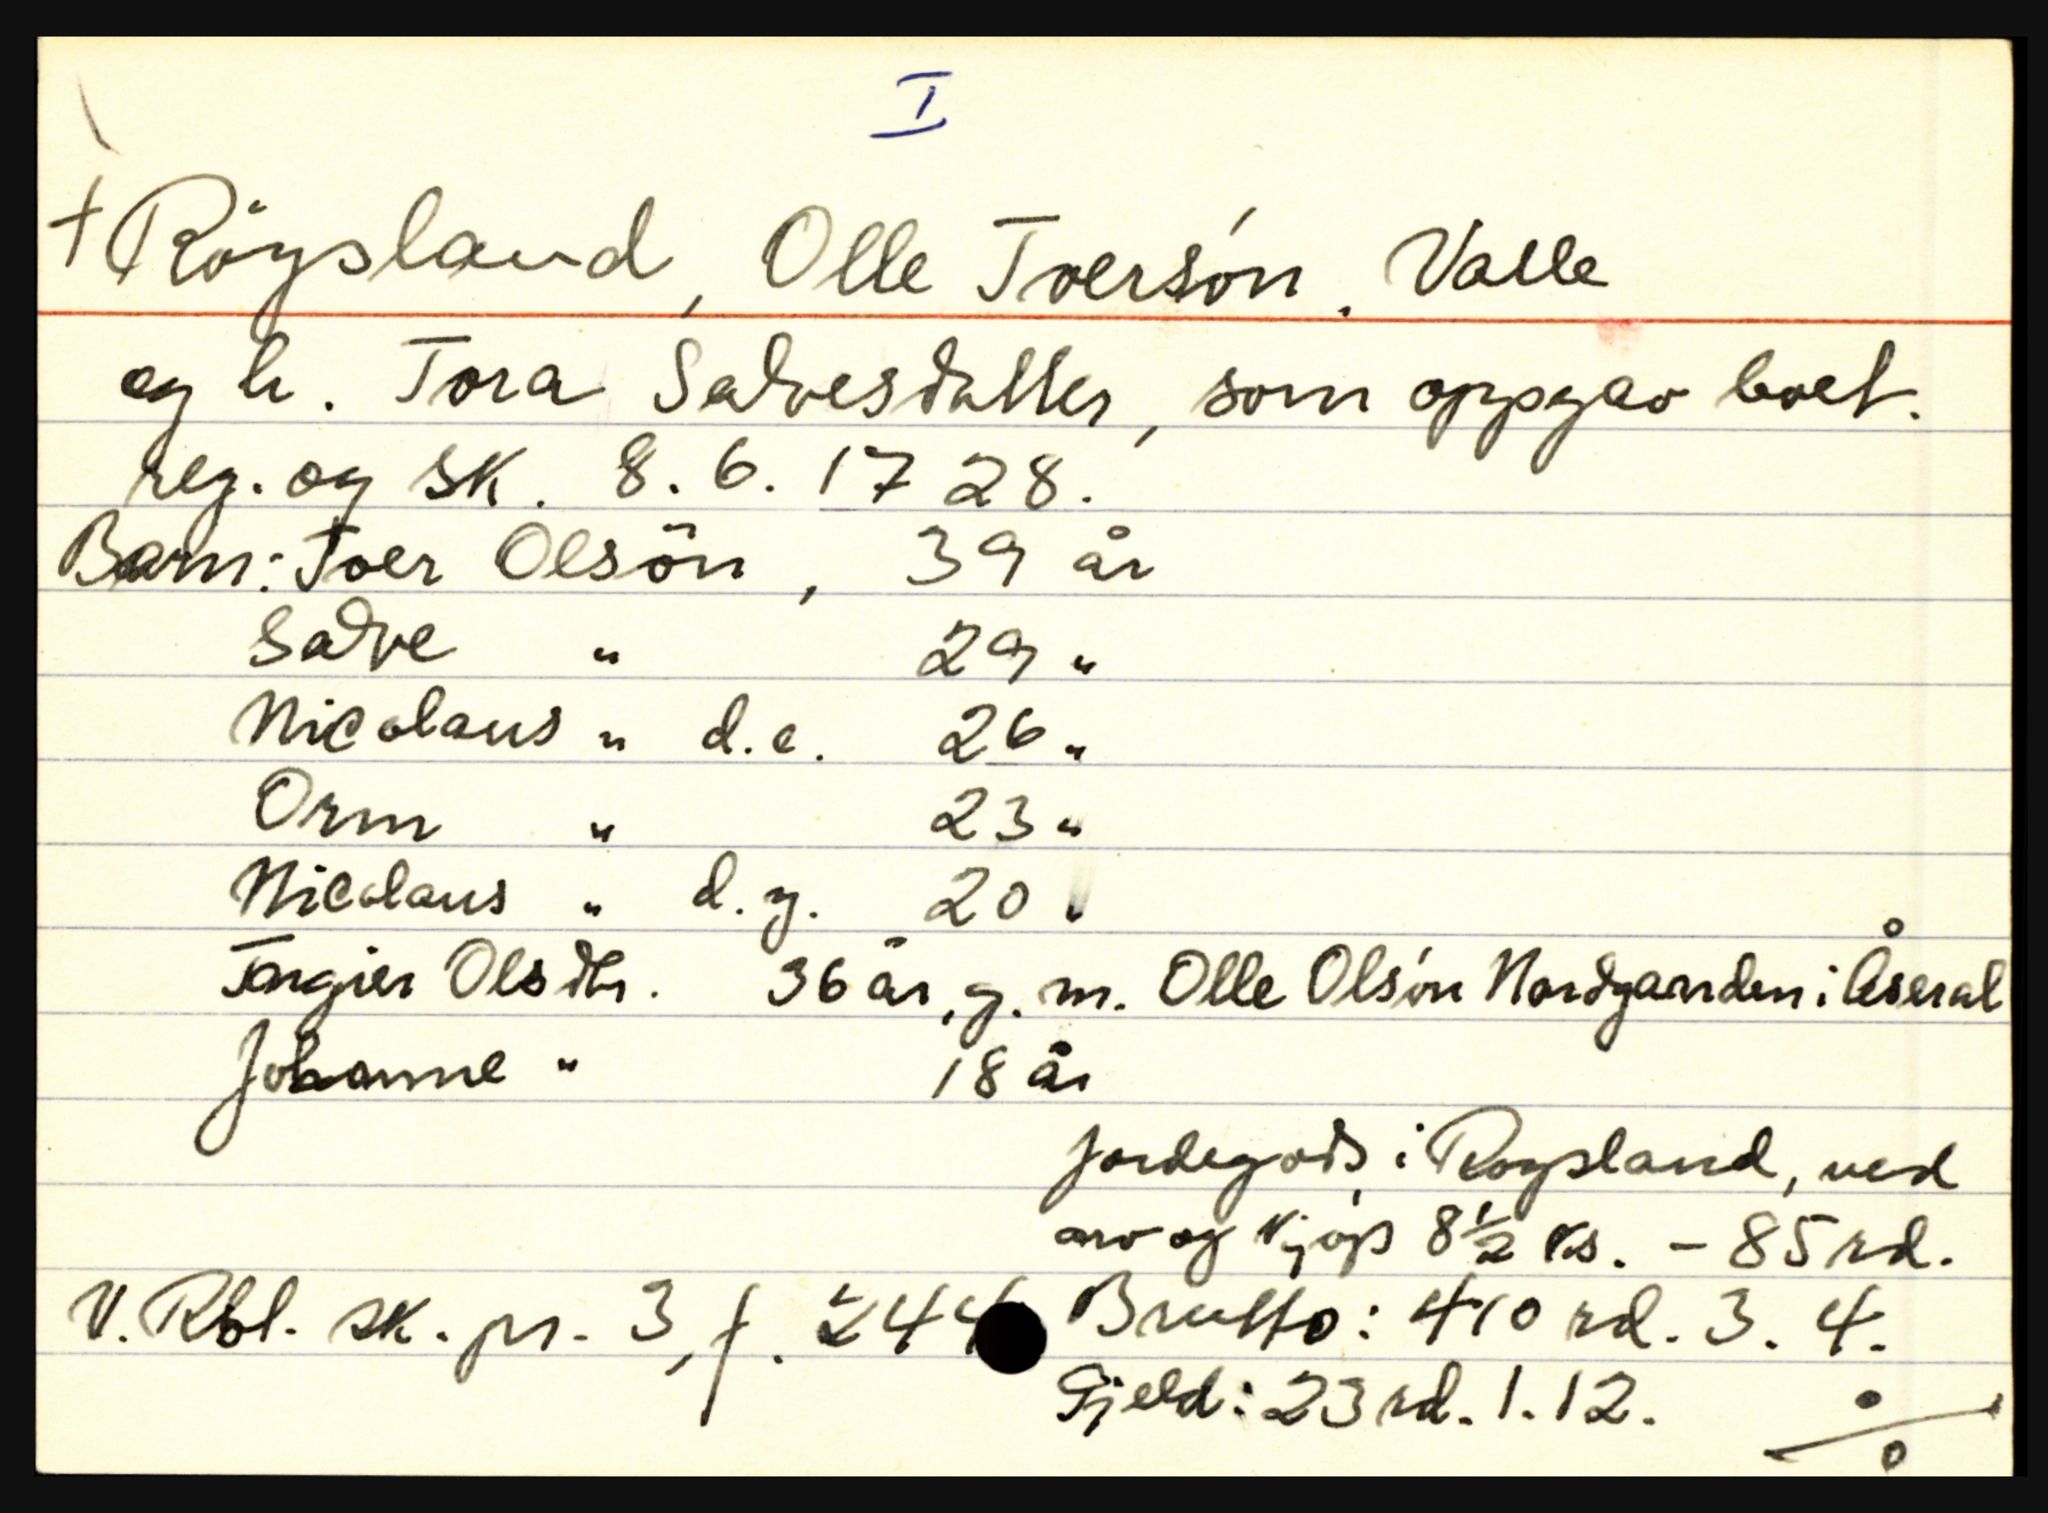 I
† Röysland, Olle Tversón. Valle
og h. Tora Salvesdatter, som oppgav boet.
reg. og sk. 8. 6. 1728.
Barn: Tver Olsön, 39 år
Salve " 29 "
Nicolaus " d.e. 26 "
Orm " 23 "
Nicolaus " d.y. 20 "
Torgier Olsdtr. 36 år, g. m. Olle Olsón Nordgarden i Åseral
Johanne " 18 år
Jordegods i Roysland, ved
arv og kjöps 8½ ks. - 85 rd.
V. Rbl. sk. pr. 3, f. 244 Brutto: 410 rd. 3. 4.
Gjeld: 23 rd. 1. 12.
%